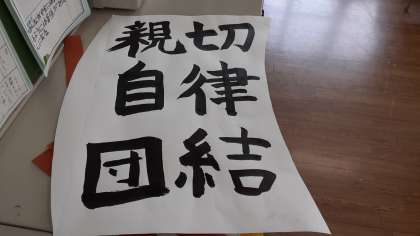 親切
自律
団結